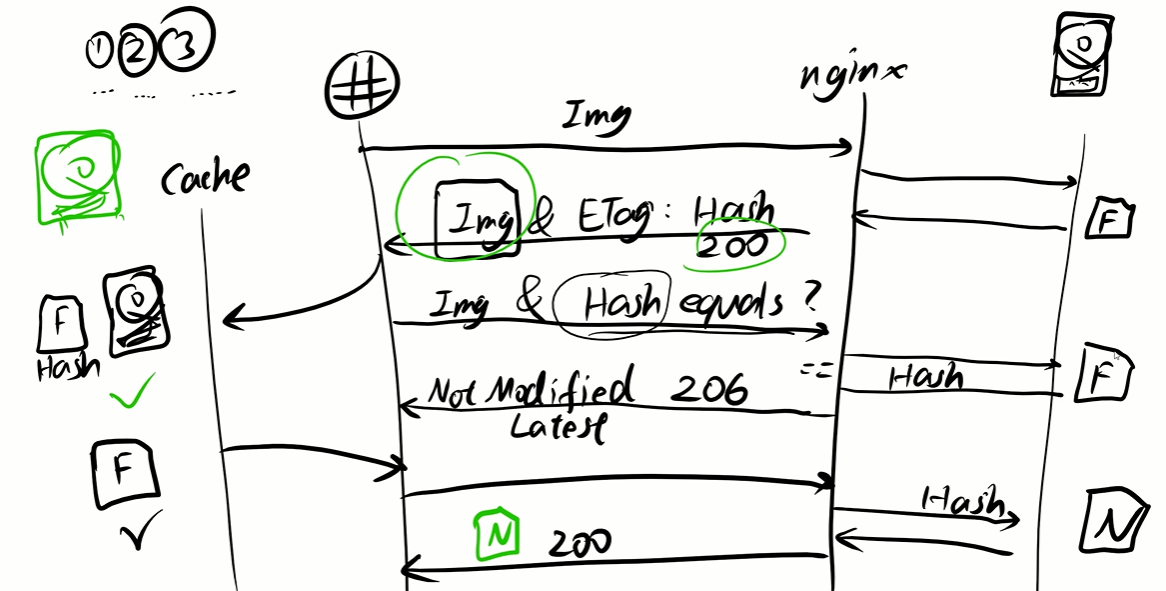 ① ② ③
#
nginx
Img
Cache
Img & ETag: Hash
200
F
Img & Hash equals ?
F
Hash
==
Hash
F
Not Modified 206
Latest
F
Hash
N
200
N